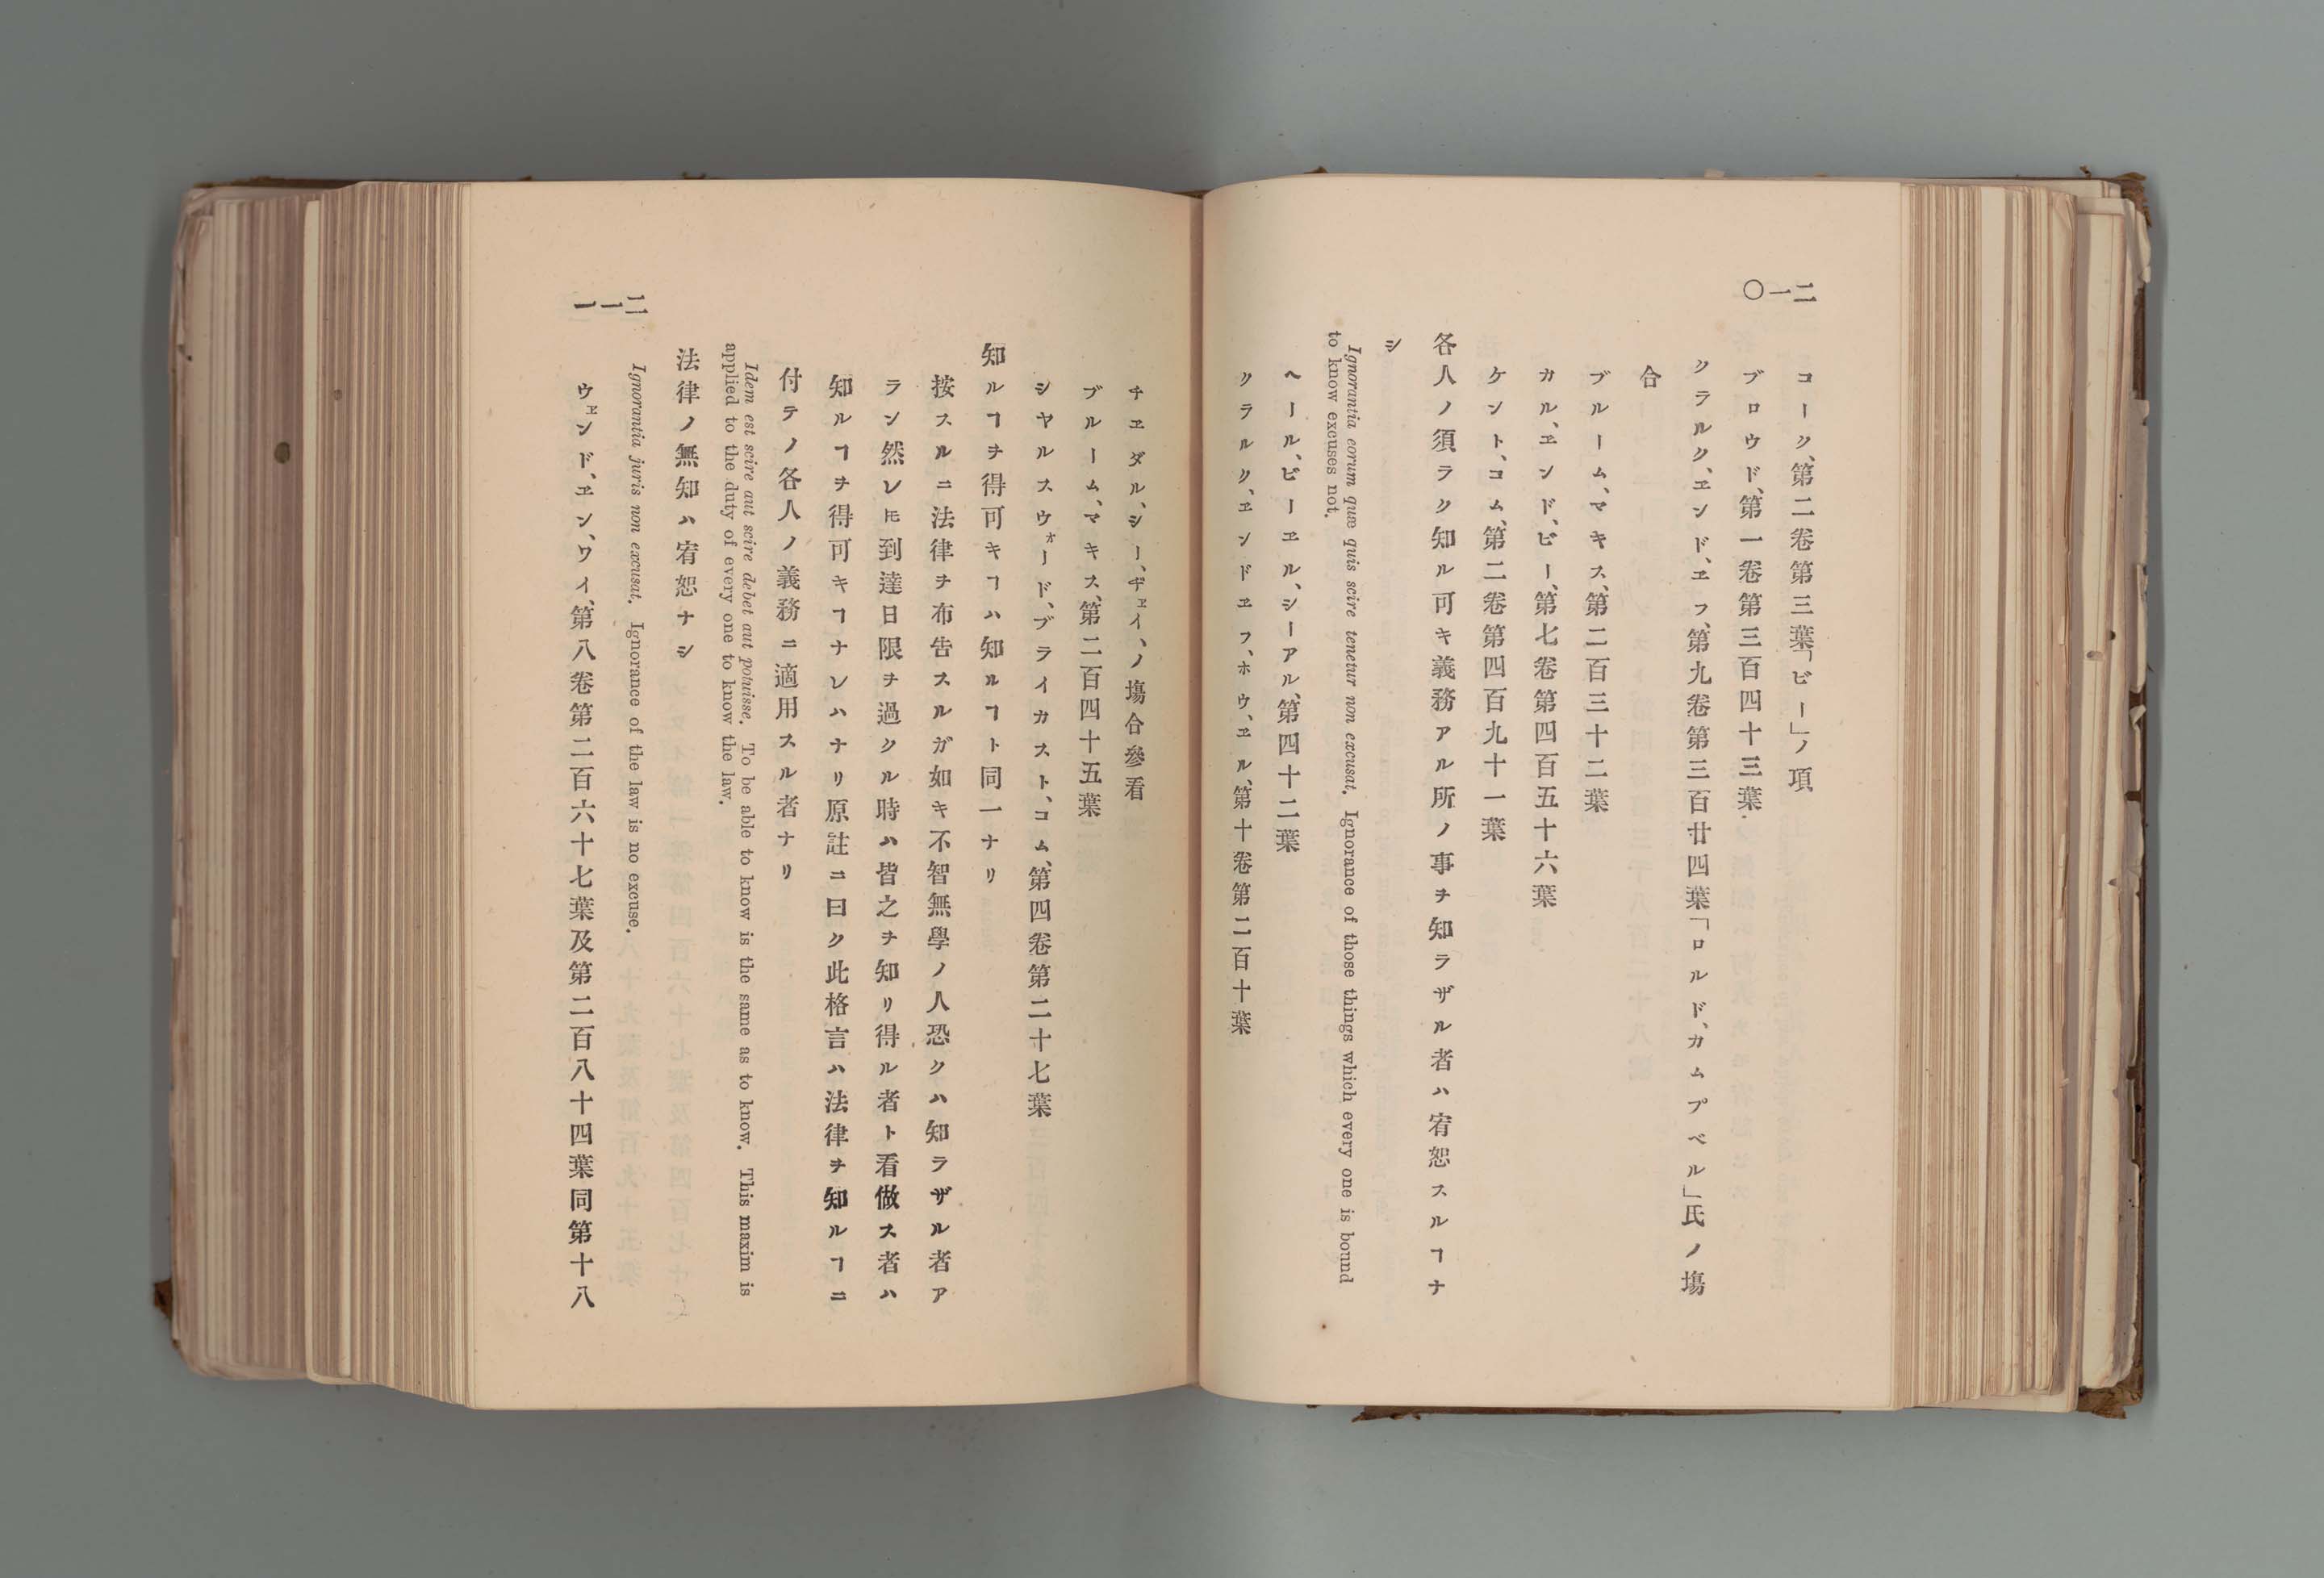 二一〇
コーク、第二卷第三葉「ビー」ノ項
ブロウド、第一卷第三百四十三葉
クラルク、ヱンド、ヱフ、第九卷第三百廿四葉「ロルド、カムプベル」氏ノ塲
合
ブルーム、マキス、第二百三十二葉
カル、ヱンド、ビー、第七卷第四百五十六葉
ケント、コム、第二卷第四百九十一葉
各人ノ須ラク知ル可キ義務アル所ノ事ヲ知ラザル者ハ宥恕スルヿナ
シ
Ignorantia eorum quæ quis scire tenetur non excusat. Ignorance of those things which every one is bound
to know excuses not.
ヘール、ビーヱル、シーアル、第四十二葉
クラルク、ヱンドヱフ、ホウ、ヱル、第十卷第二百十葉
二一一
チヱダル、シー、ヂェイ、ノ塲合參看
ブルーム、マキス、第二百四十五葉
シヤルスウォード、ブライカスト、コム、第四卷第二十七葉
知ルヿヲ得可キヿハ知ルヿト同一ナリ
按スルニ法律ヲ布告スルガ如キ不智無學ノ人恐クハ知ラザル者ア
ラン然レ𪜈到達日限ヲ過クル時ハ皆之ヲ知リ得ル者ト看做ス者ハ
知ルヿヲ得可キヿナレハナリ原註ニ曰ク此格言ハ法律ヲ知ルヿニ
付テノ各人ノ義務ニ適用スル者ナリ
Idem est scire aut scire debet aut potuisse. To be able to know is the same as to know. This maxim is
applied to the duty of every one to know the law.
法律ノ無知ハ宥恕ナシ
Ignorantia juris non excusat. Ignorance of the law is no excuse.
ウェンド、ヱン、ワイ、第八卷第二百六十七葉及第二百八十四葉同第十八